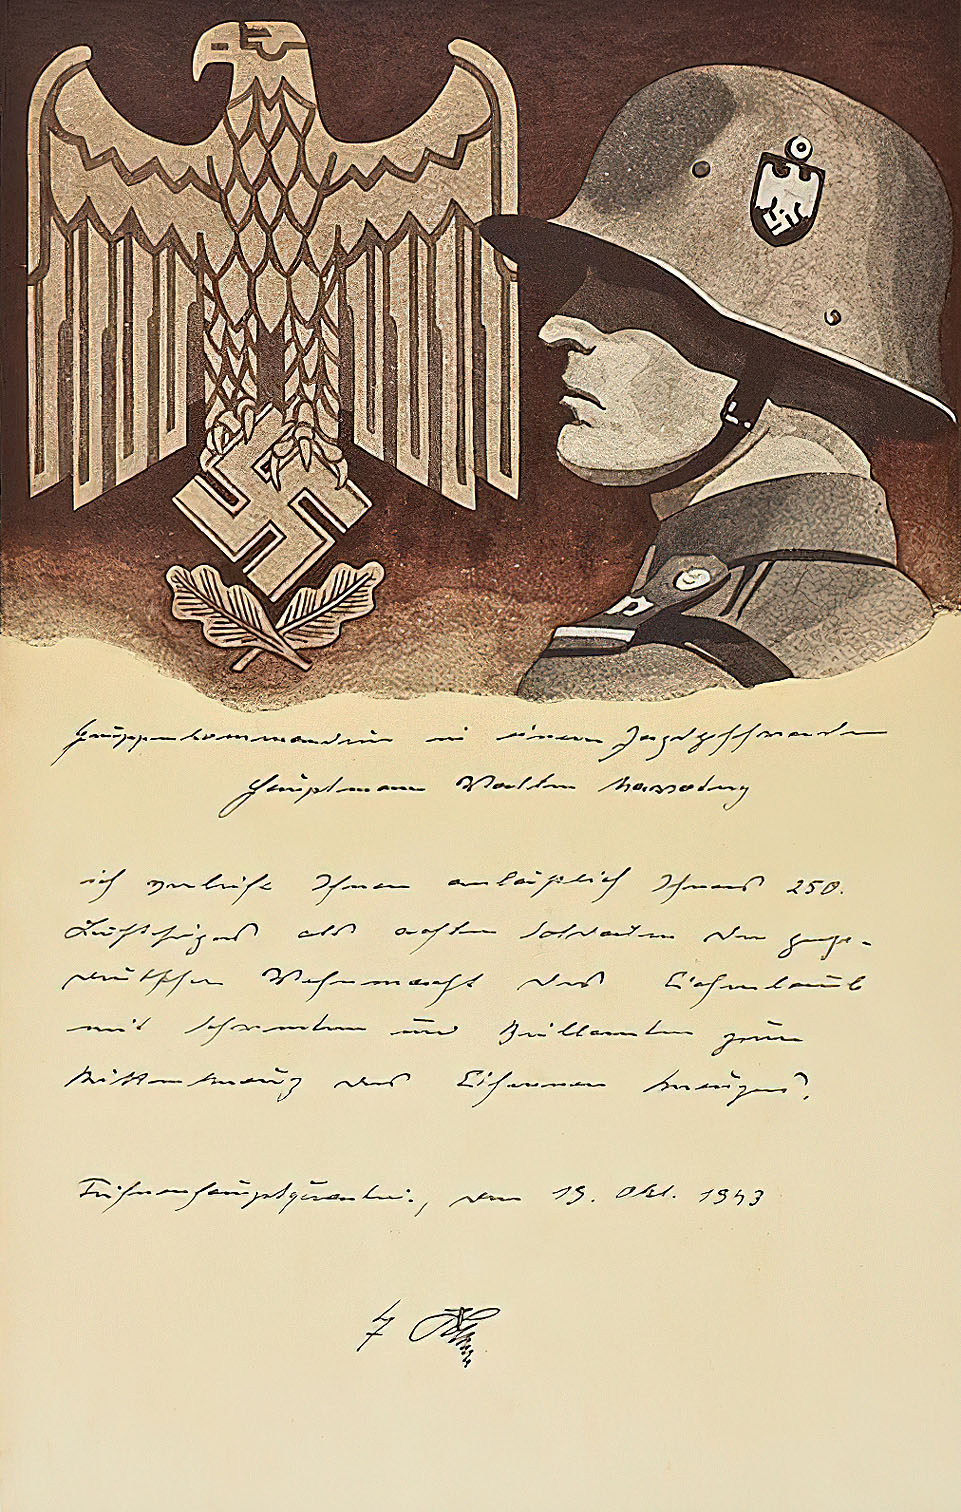 Gruppenkommandeur in einem Jagdgeschwader
Hauptmann Walter Nowotny
ich verleihe Ihnen anläßlich Ihres 250.
Luftsieges als achten Soldaten der groß-
deutschen Wehrmacht das Eichenlaub
mit Schwertern und Brillanten zum
Ritterkreuz des Eisernen Kreuzes.
Führerhauptquartier, den 19. Okt. 1943